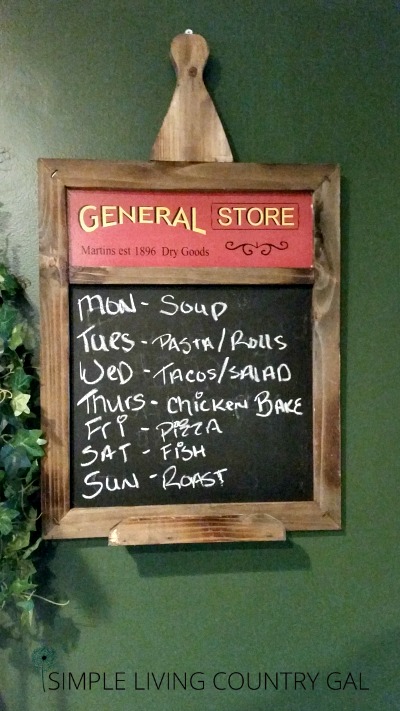 GENERAL STORE
Martins est 1896 Dry Goods
MON - Soup
Tues - PASTA/ROLLS
WED - TACOS/SALAD
Thurs - Chicken BAKE
Fri - PiZZA
SAT - FiSH
SUN - ROAST
SIMPLE LIVING COUNTRY GAL